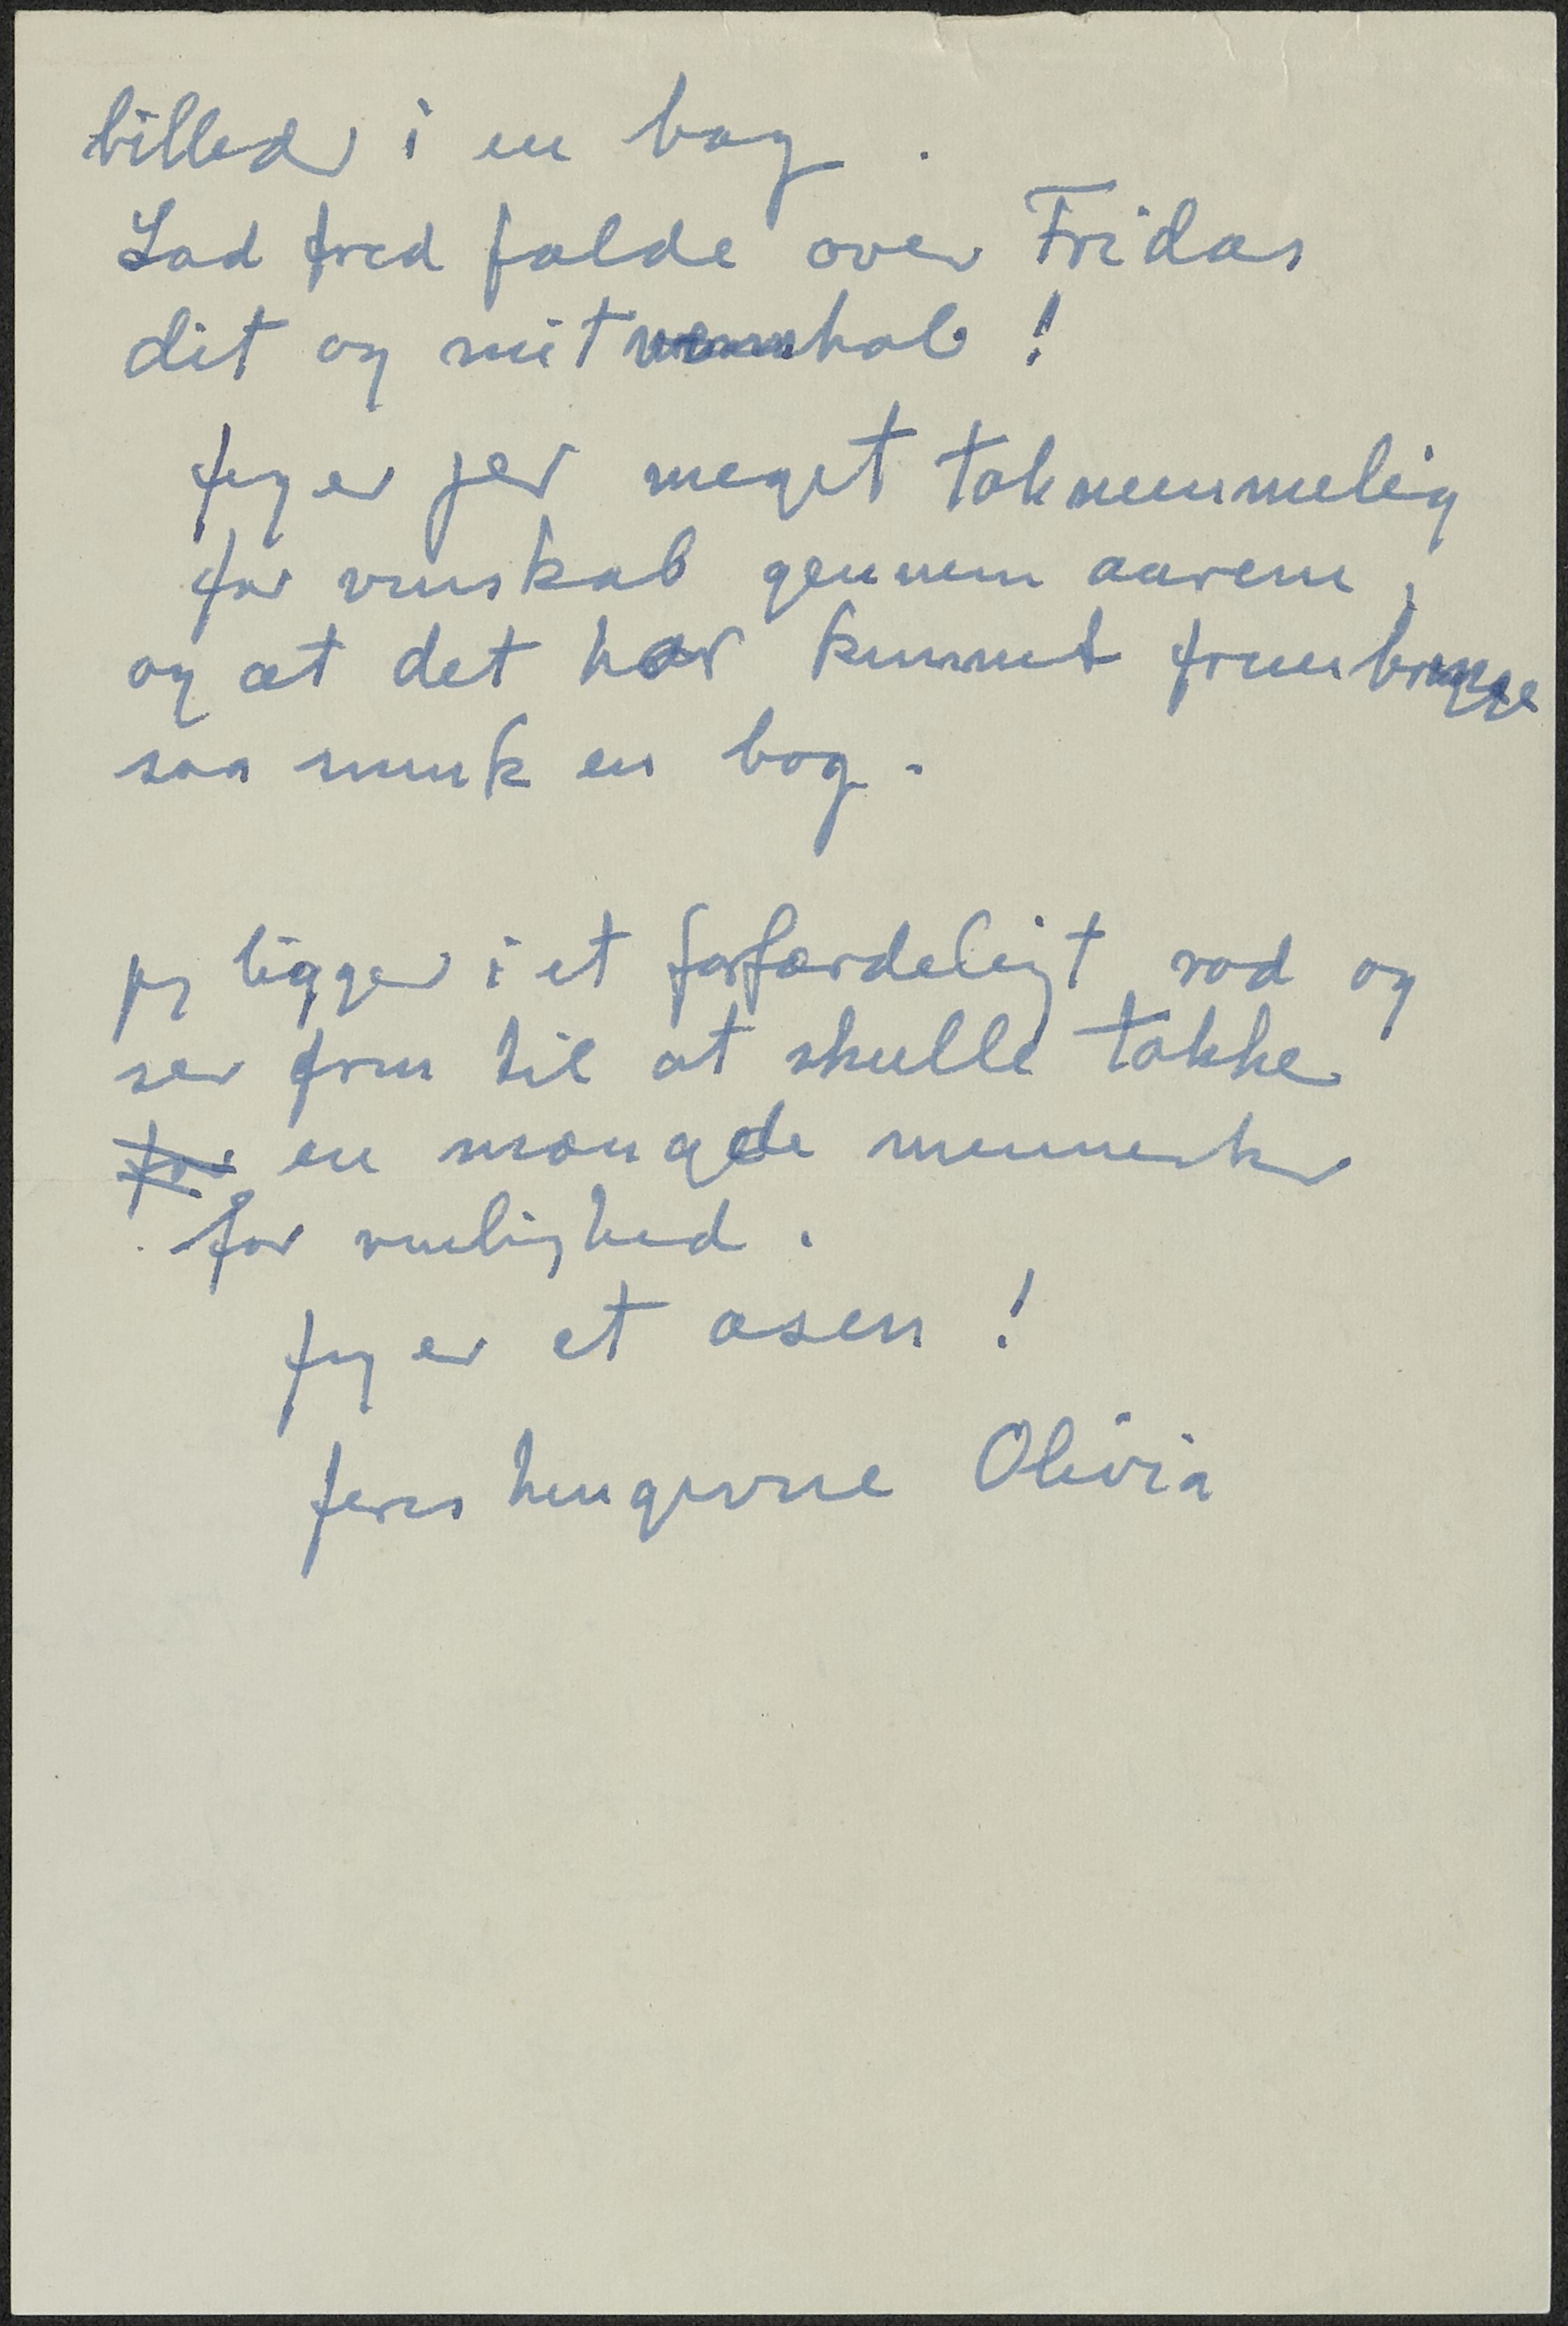 billeder i en bog.
Lad fred falde over Fridas
dit og mit venskab!
Jeg er jer meget taknemmelig
for venskab gennem aarene,
og at det har kunnet frembringe
saa smuk en bog.
jeg ligger i et forfærdeligt rod og
ser frem til at skulle takke
for en mængde mennesker
for venlighed.
Jeg er et asen!
Jeres hengivne Olivia